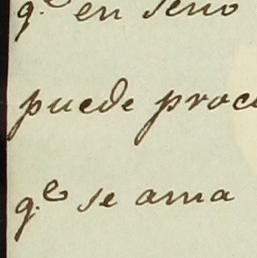 q.e en seno
puede proc
q.e se ama